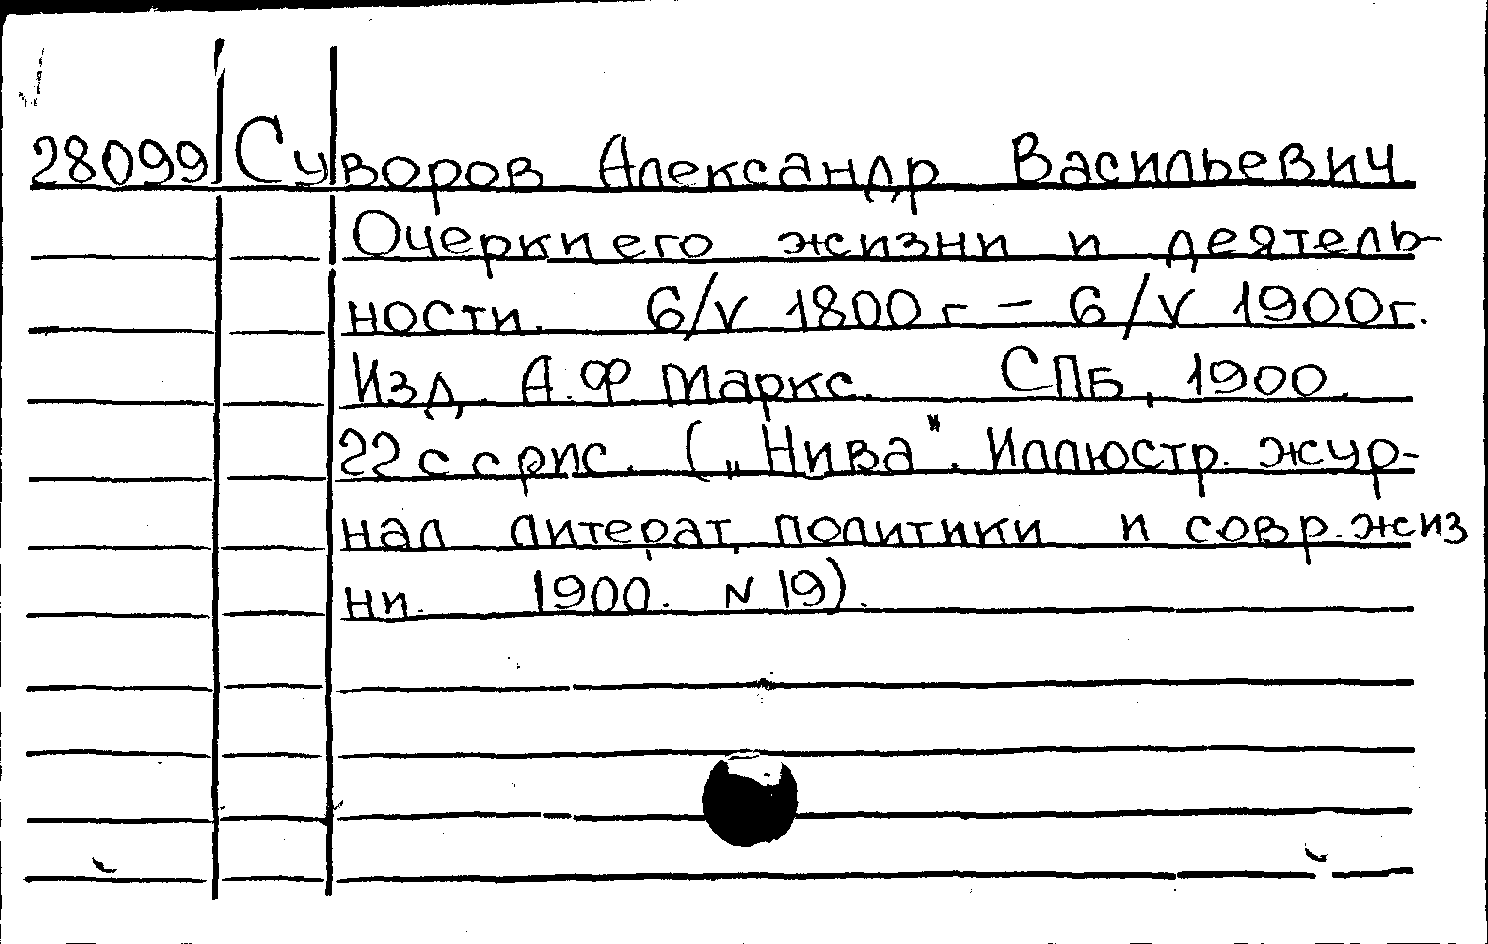 28099 Суворов Александр Васильевич
Очерки его жизни и деятель-
ности. 6/V 1800 г - 6/V 1900г.
Изд. А.Ф. Маркс. СПБ, 1900.
22 с с рис. („Нива". Иллюстр. жур-
нал литерат, политики и совр. жиз
ни. 1900. N 19).